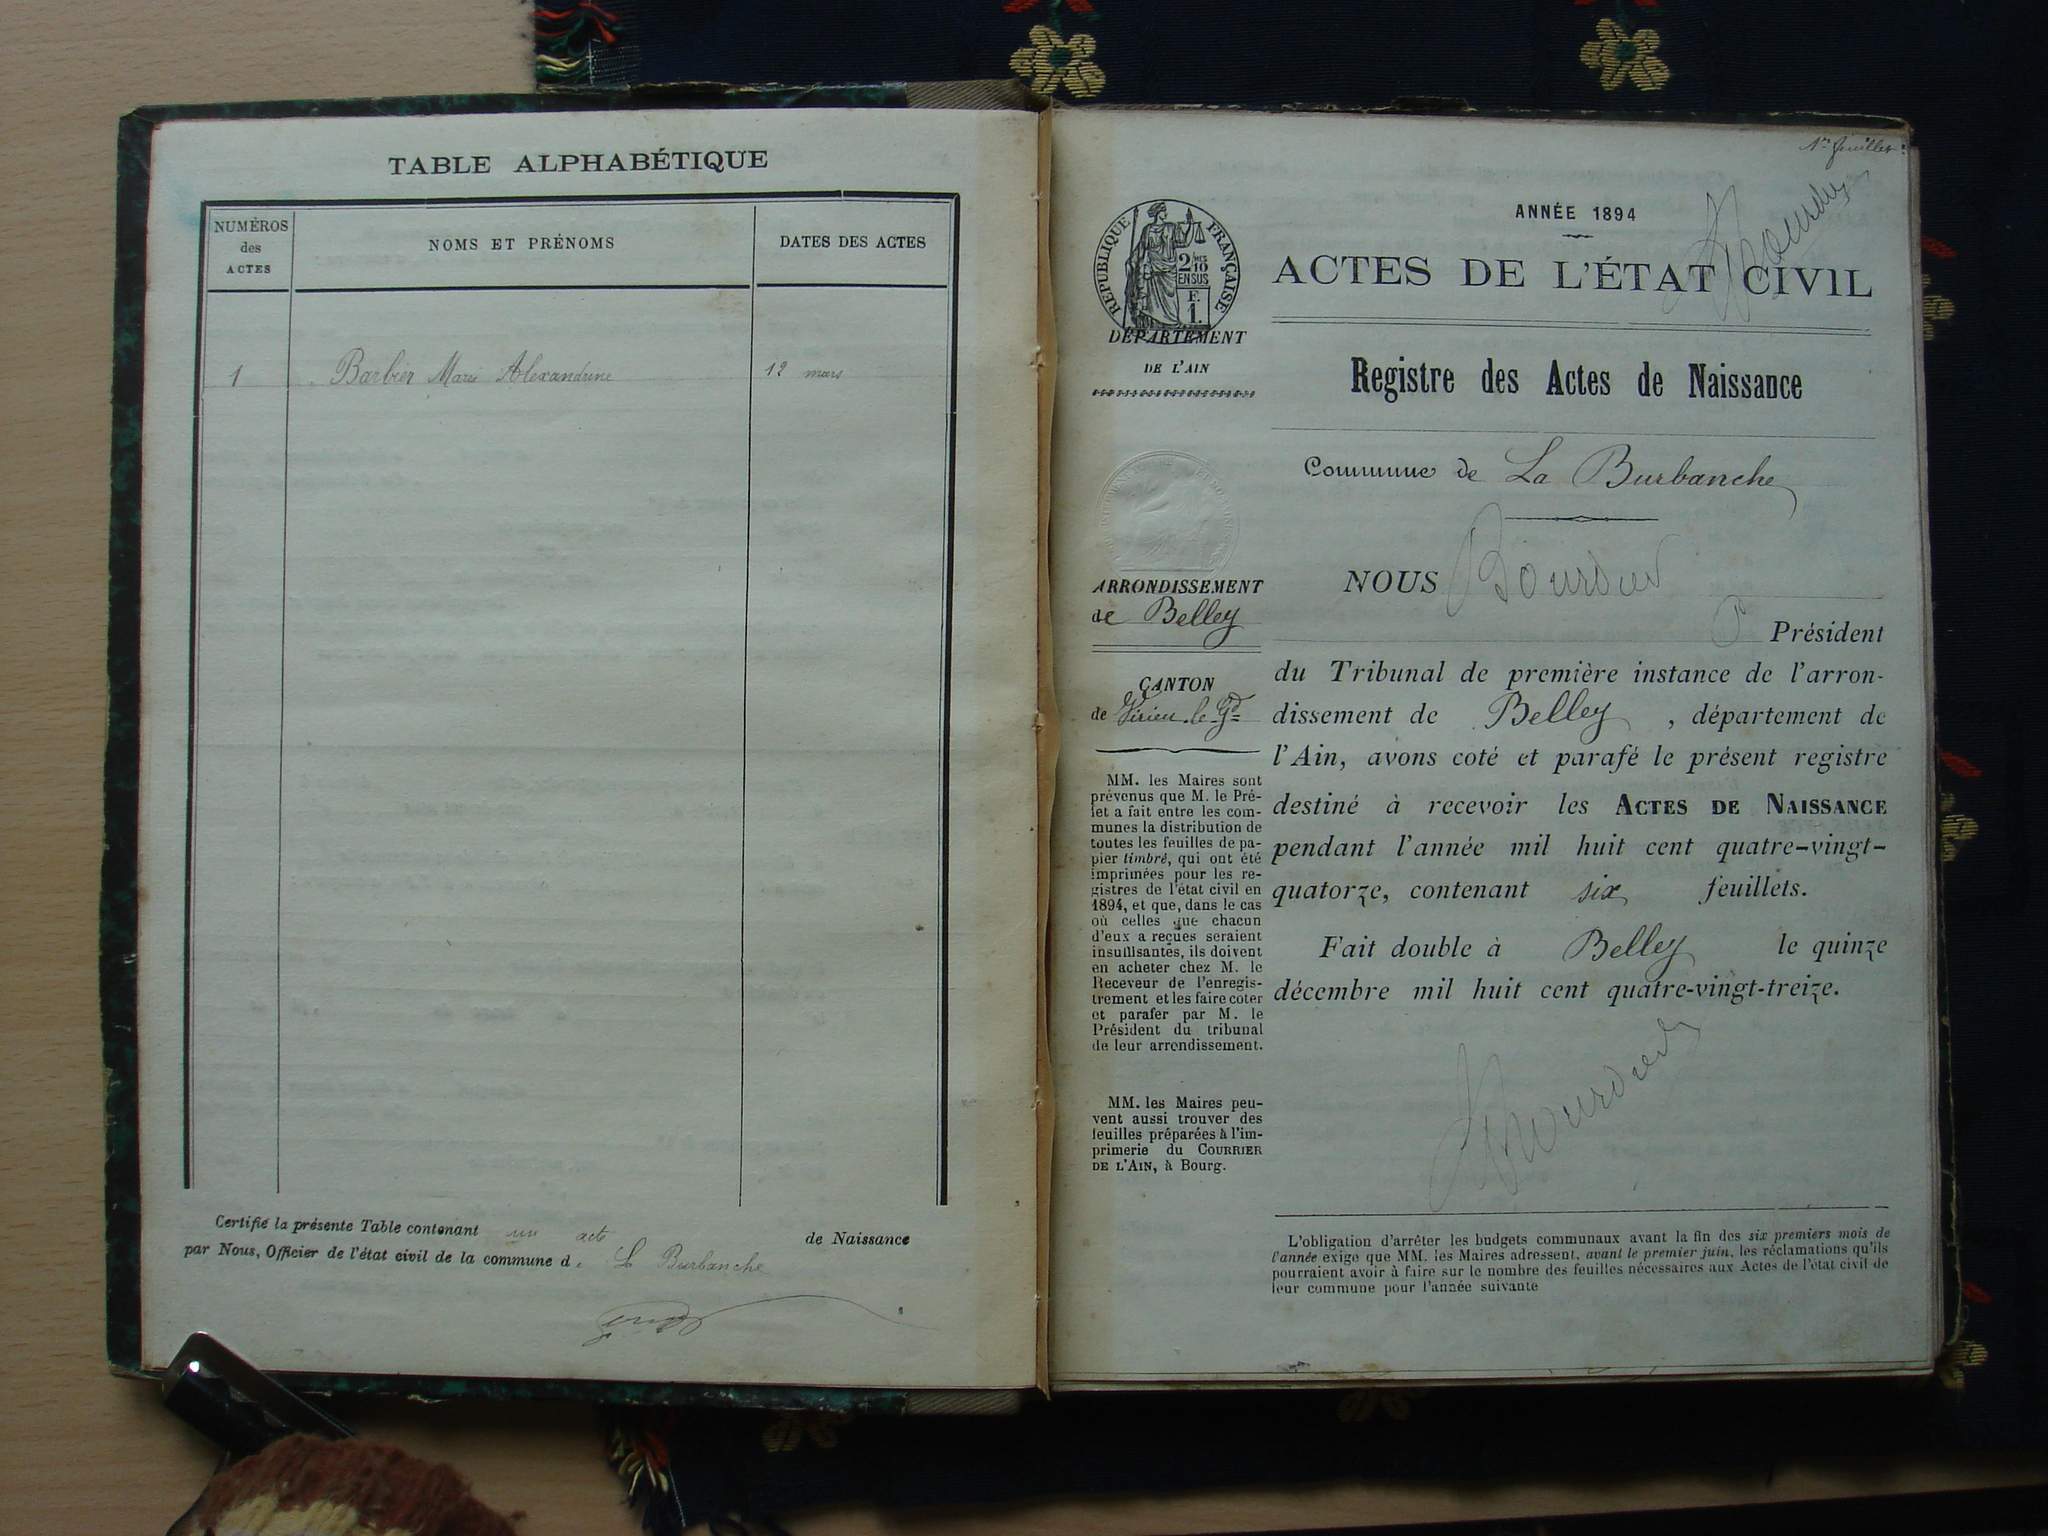 TABLE ALPHABÉTIQUE
NUMÉROS
des
ACTES
NOMS ET PRÉNOMS
DATES DES ACTES
1 Barbier Marie Alexandrine 12 mars
Certifié la présente Table contenant un acte de Naissance
par Nous, Officier de l'état civil de la commune d La Burbanche
1er feuillet
RÉPUBLIQUE FRANÇAISE
2/10
EN SUS
F.
1.
DÉPARTEMENT
DE L'AIN
ARRONDISSEMENT
de Belley
CANTON
de Virieu-le-Gd
MM. les Maires sont
prévenus que M. le Pré-
fet a fait entre les com-
munes la distribution de
toutes les feuilles de pa-
pier timbré, qui ont été
imprimées pour les re-
gistres de l'état civil en
1894, et que, dans le cas
où celles que chacun
d'eux a reçues seraient
insuffisantes, ils doivent
en acheter chez M. le
Receveur de l'enregis-
trement et les faire coter
et parafer par M. le
Président du tribunal
de leur arrondissement.
MM. les Maires peu-
vent aussi trouver des
feuilles préparées à l'im-
primerie du COURRIER
DE L'AIN, à Bourg.
ANNÉE 1894
ACTES DE L'ÉTAT CIVIL
Registre des Actes de Naissance
Commune de La Burbanche
NOUS Bourdier
Président
du Tribunal de première instance de l'arron-
dissement de Belley, département de
l'Ain, avons coté et parafé le présent registre
destiné à recevoir les ACTES DE NAISSANCE
pendant l'année mil huit cent quatre-vingt-
quatorze, contenant six feuillets.
Fait double à Belley le quinze
décembre mil huit cent quatre-vingt-treize.
L'obligation d'arrêter les budgets communaux avant la fin des six premiers mois de
l'année exige que MM. les Maires adressent, avant le premier juin, les réclamations qu'ils
pourraient avoir à faire sur le nombre des feuilles nécessaires aux Actes de l'état civil de
leur commune pour l'année suivante